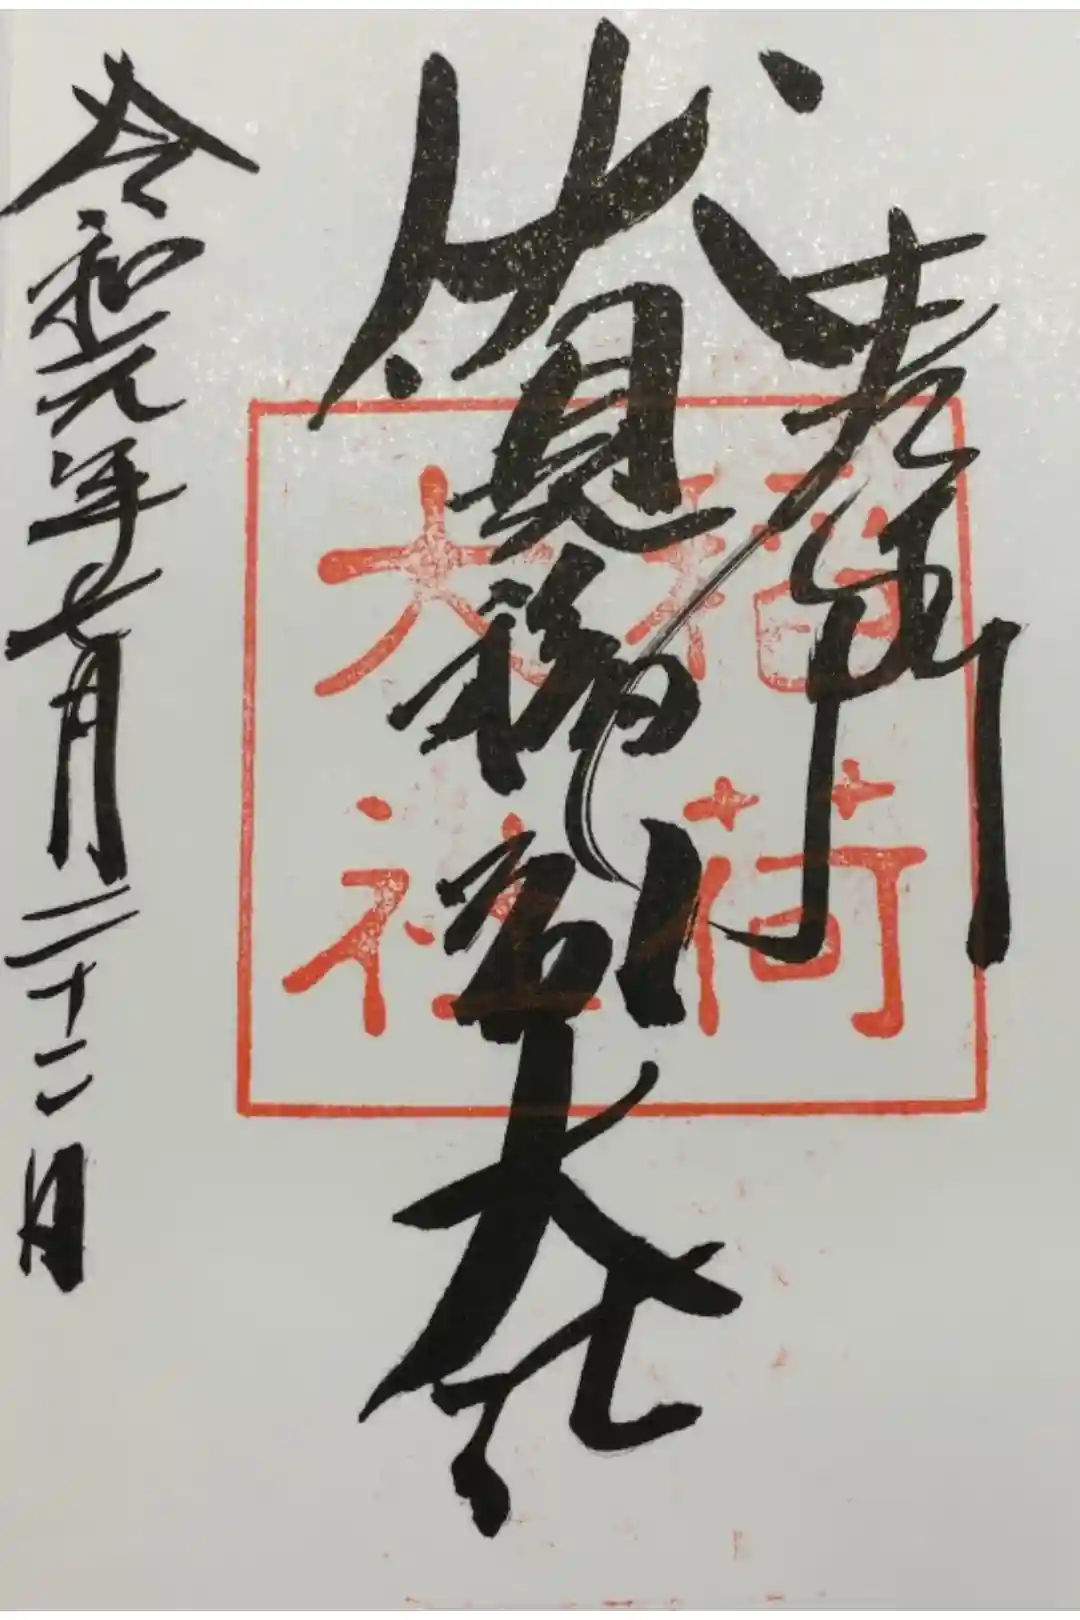 伏見稲荷大社
稲荷
大社
令和元年七月二十二日